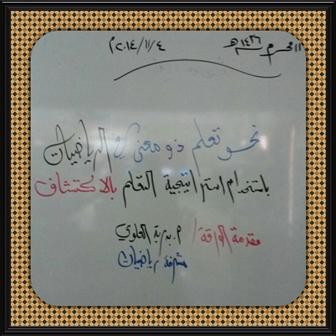 ١١ محرم ١٤٣٦هـ
٢٠١٤/١١/٤م
نحو تعلم ذو معنى في الرياضيات
باستخدام استراتيجية التعلم بالاكتشاف
مقدمة الورقة / م. بدرية العلوي
مشرفة رياضيات